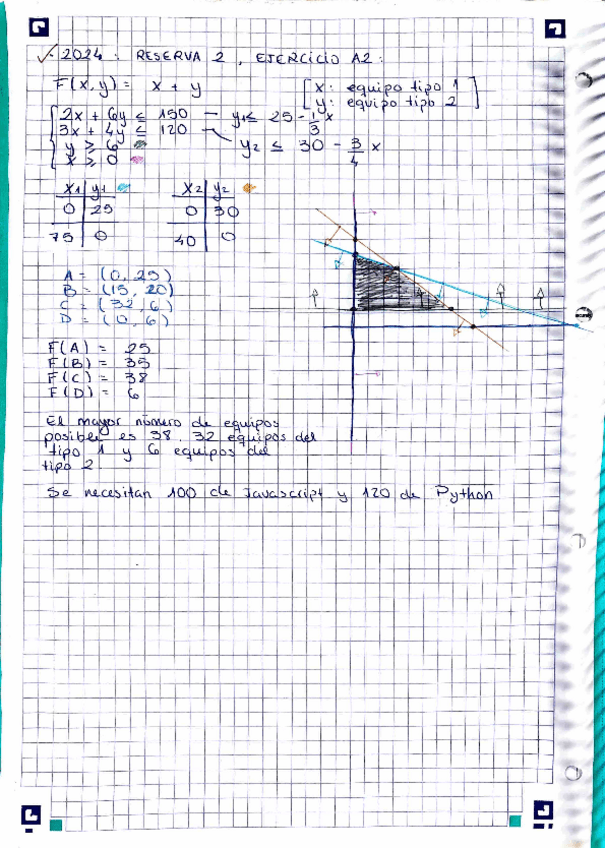 2024: RESERVA 2, EJERCICIO A2:
F(x,y) = x + y [x: equipo tipo 1
y: equipo tipo 2]
2x + 6y ≤ 150 — y1 ≤ 25 - 1/3 x
3x + 4y ≤ 120 — y2 ≤ 30 - 3/4 x
y ≥ 6
x ≥ 0
x1 | y1
0 | 25
75 | 0
x2 | y2
0 | 30
40 | 0
A = (0, 25)
B = (15, 20)
C = (32, 6)
D = (0, 6)
F(A) = 25
F(B) = 35
F(C) = 38
F(D) = 6
El mayor número de equipos
posible es 38, 32 equipos del
tipo 1 y 6 equipos del
tipo 2
Se necesitan 100 de Javascript y 120 de Python